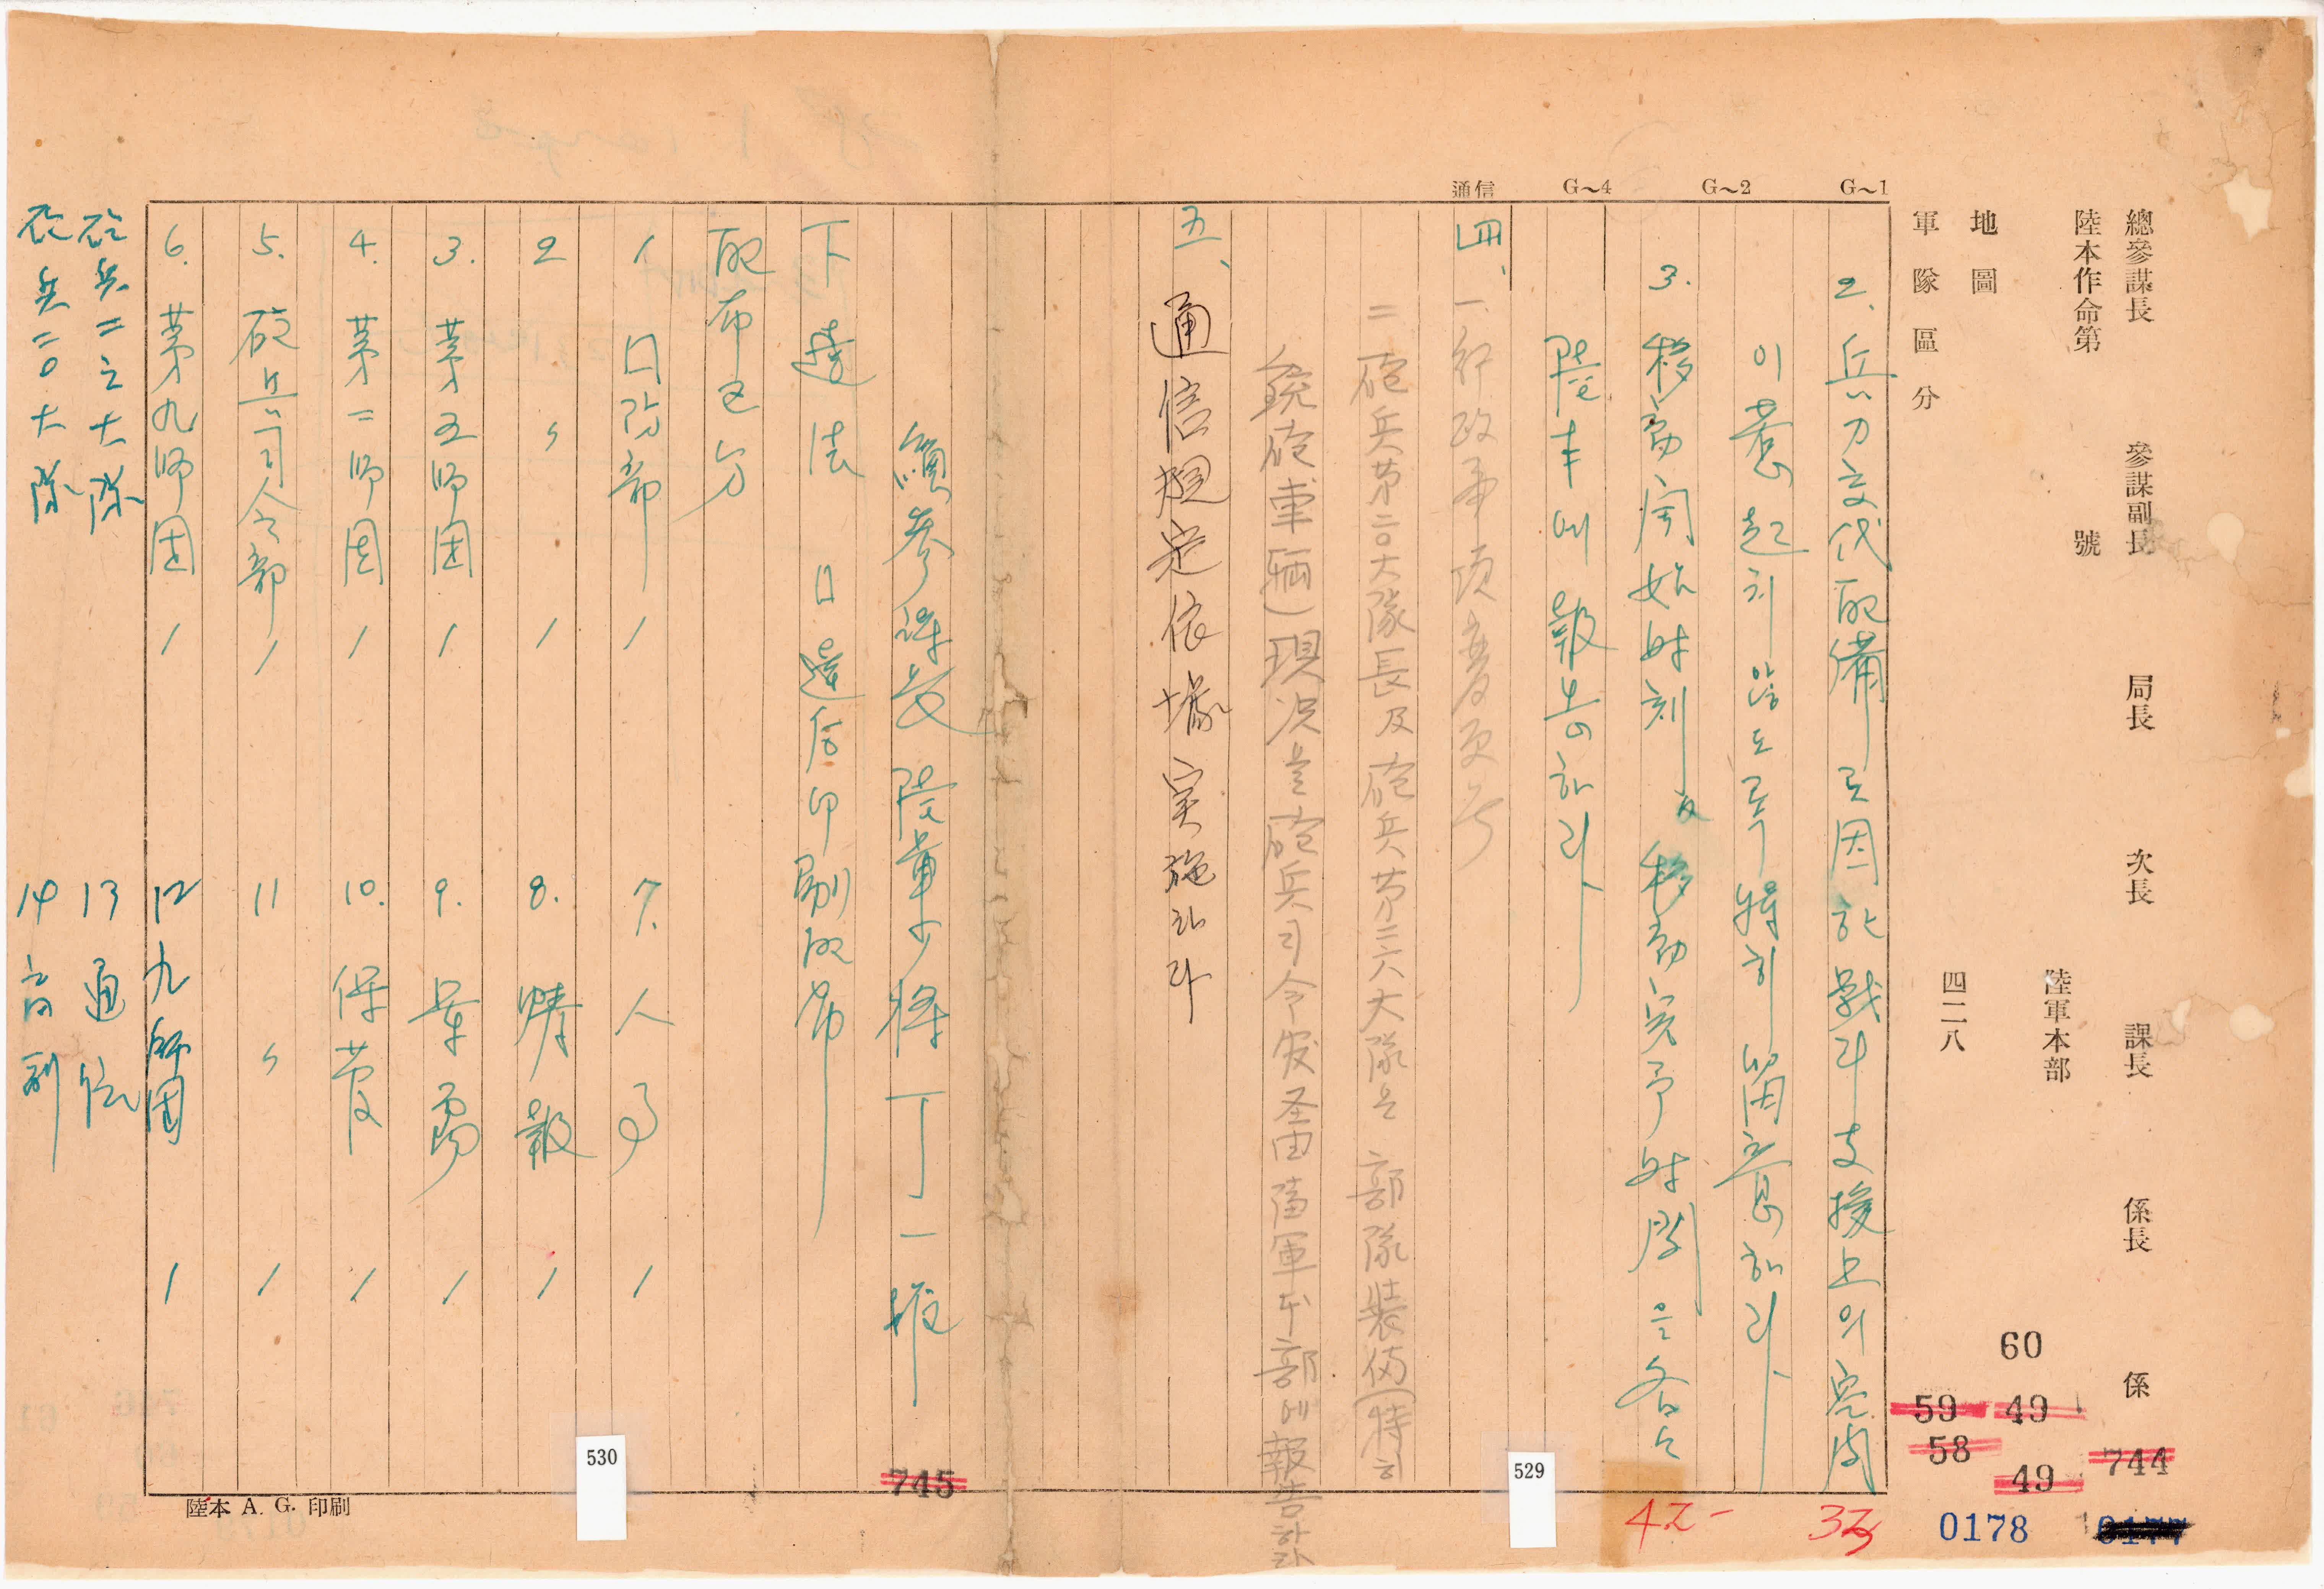 總參謀長 參謀副長 局長 次長 課長 係長 係
陸本作命第 號
陸軍本部
地圖
四二八
軍隊區分
G~1
G~2
G~4
通信
2. 兵力交代配備로因한戰斗支援上의空間
이惹起치않도록特히留意하라
3. 移動開始時刻及移動完了時間은各々
陸本에報告하라
四、一、行政事項變更무
二 砲兵第二〇大隊長及砲兵第二六大隊은部隊裝備(特히
銃砲車輛)現況을砲兵司令官경由陸軍本部에報告하라
五、通信規定依據実施하라
總參謀長 陸軍少將 丁一權
下達法 口達后印刷配布
配布区分
1 日防部 1 7. 人事 1
2 〃 1 8. 情報 1
3. 第五師団 1 9. 軍需 1
4. 第二師団 1 10. 保管 1
5. 砲兵司令部 1 11 〃 1
6. 第九師団 1 12 九師団 1
砲兵二之大隊 13 通信
砲兵二〇大隊 14 高副
60
59 49
58 49
744
745
0178 0177
529
530
陸本 A. G. 印刷